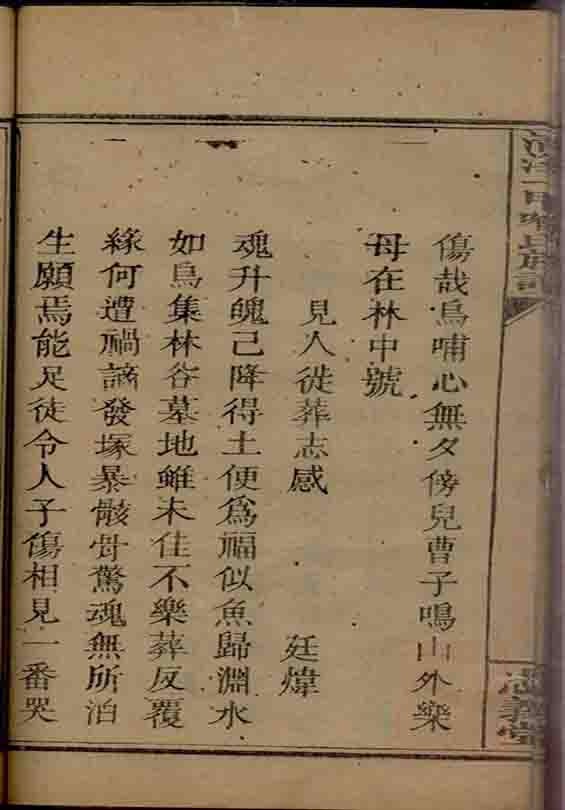 族譜
忠義堂
傷哉鳥哺心無夕傍兒曹子鳴山外樂
母在林中號
見人徙葬志感
廷煒
魂升魄已降得土便為福似魚歸淵水
如鳥集林谷墓地雖未佳不樂葬反覆
緣何遭禍謫發塚暴骸骨驚魂無所泊
生願焉能足徒令人子傷相見一番哭